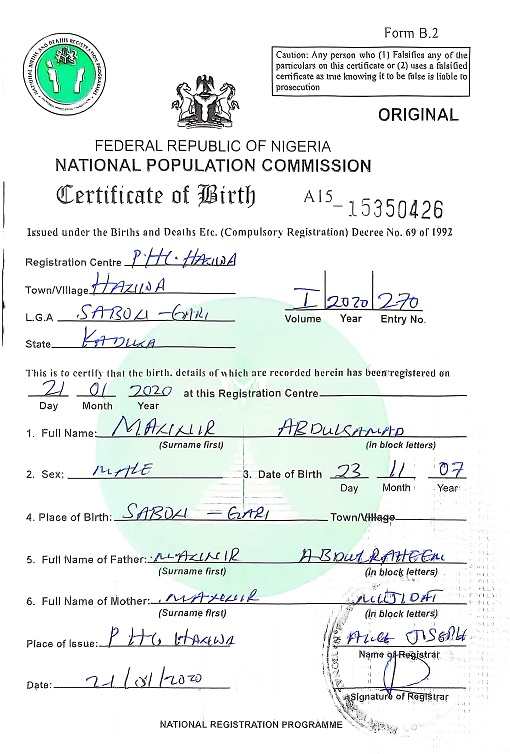 Form B.2
Caution: Any person who (1) Falsifies any of the
particulars on this certificate or (2) uses a falsified
certificate as true knowing it to be false is liable to
prosecution
ORIGINAL
FEDERAL REPUBLIC OF NIGERIA
NATIONAL POPULATION COMMISSION
Certificate of Birth A15-15350426
Issued under the Births and Deaths Etc. (Compulsory Registration) Decree No. 69 of 1992
Registration Centre P.H.C. HAZIWA
Town/Village HAZIWA
I 2020 270
Volume Year Entry No.
L.G.A SABON-GARI
State KADUNA
This is to certify that the birth, details of which are recorded herein has been registered on
21 01 2020 at this Registration Centre
Day Month Year
1. Full Name: ABDULSAMAD
(Surname first) (in block letters)
2. Sex: MALE 3. Date of Birth 23 11 07
Day Month Year
4. Place of Birth: SABON-GARI Town/Village
5. Full Name of Father: ABDULRAHEEM
(Surname first) (in block letters)
6. Full Name of Mother:
(Surname first) (in block letters)
Place of Issue: PHC HAZIWA ALICE JOSEPH
Name of Registrar
Date: 21/01/2020
Signature of Registrar
NATIONAL REGISTRATION PROGRAMME